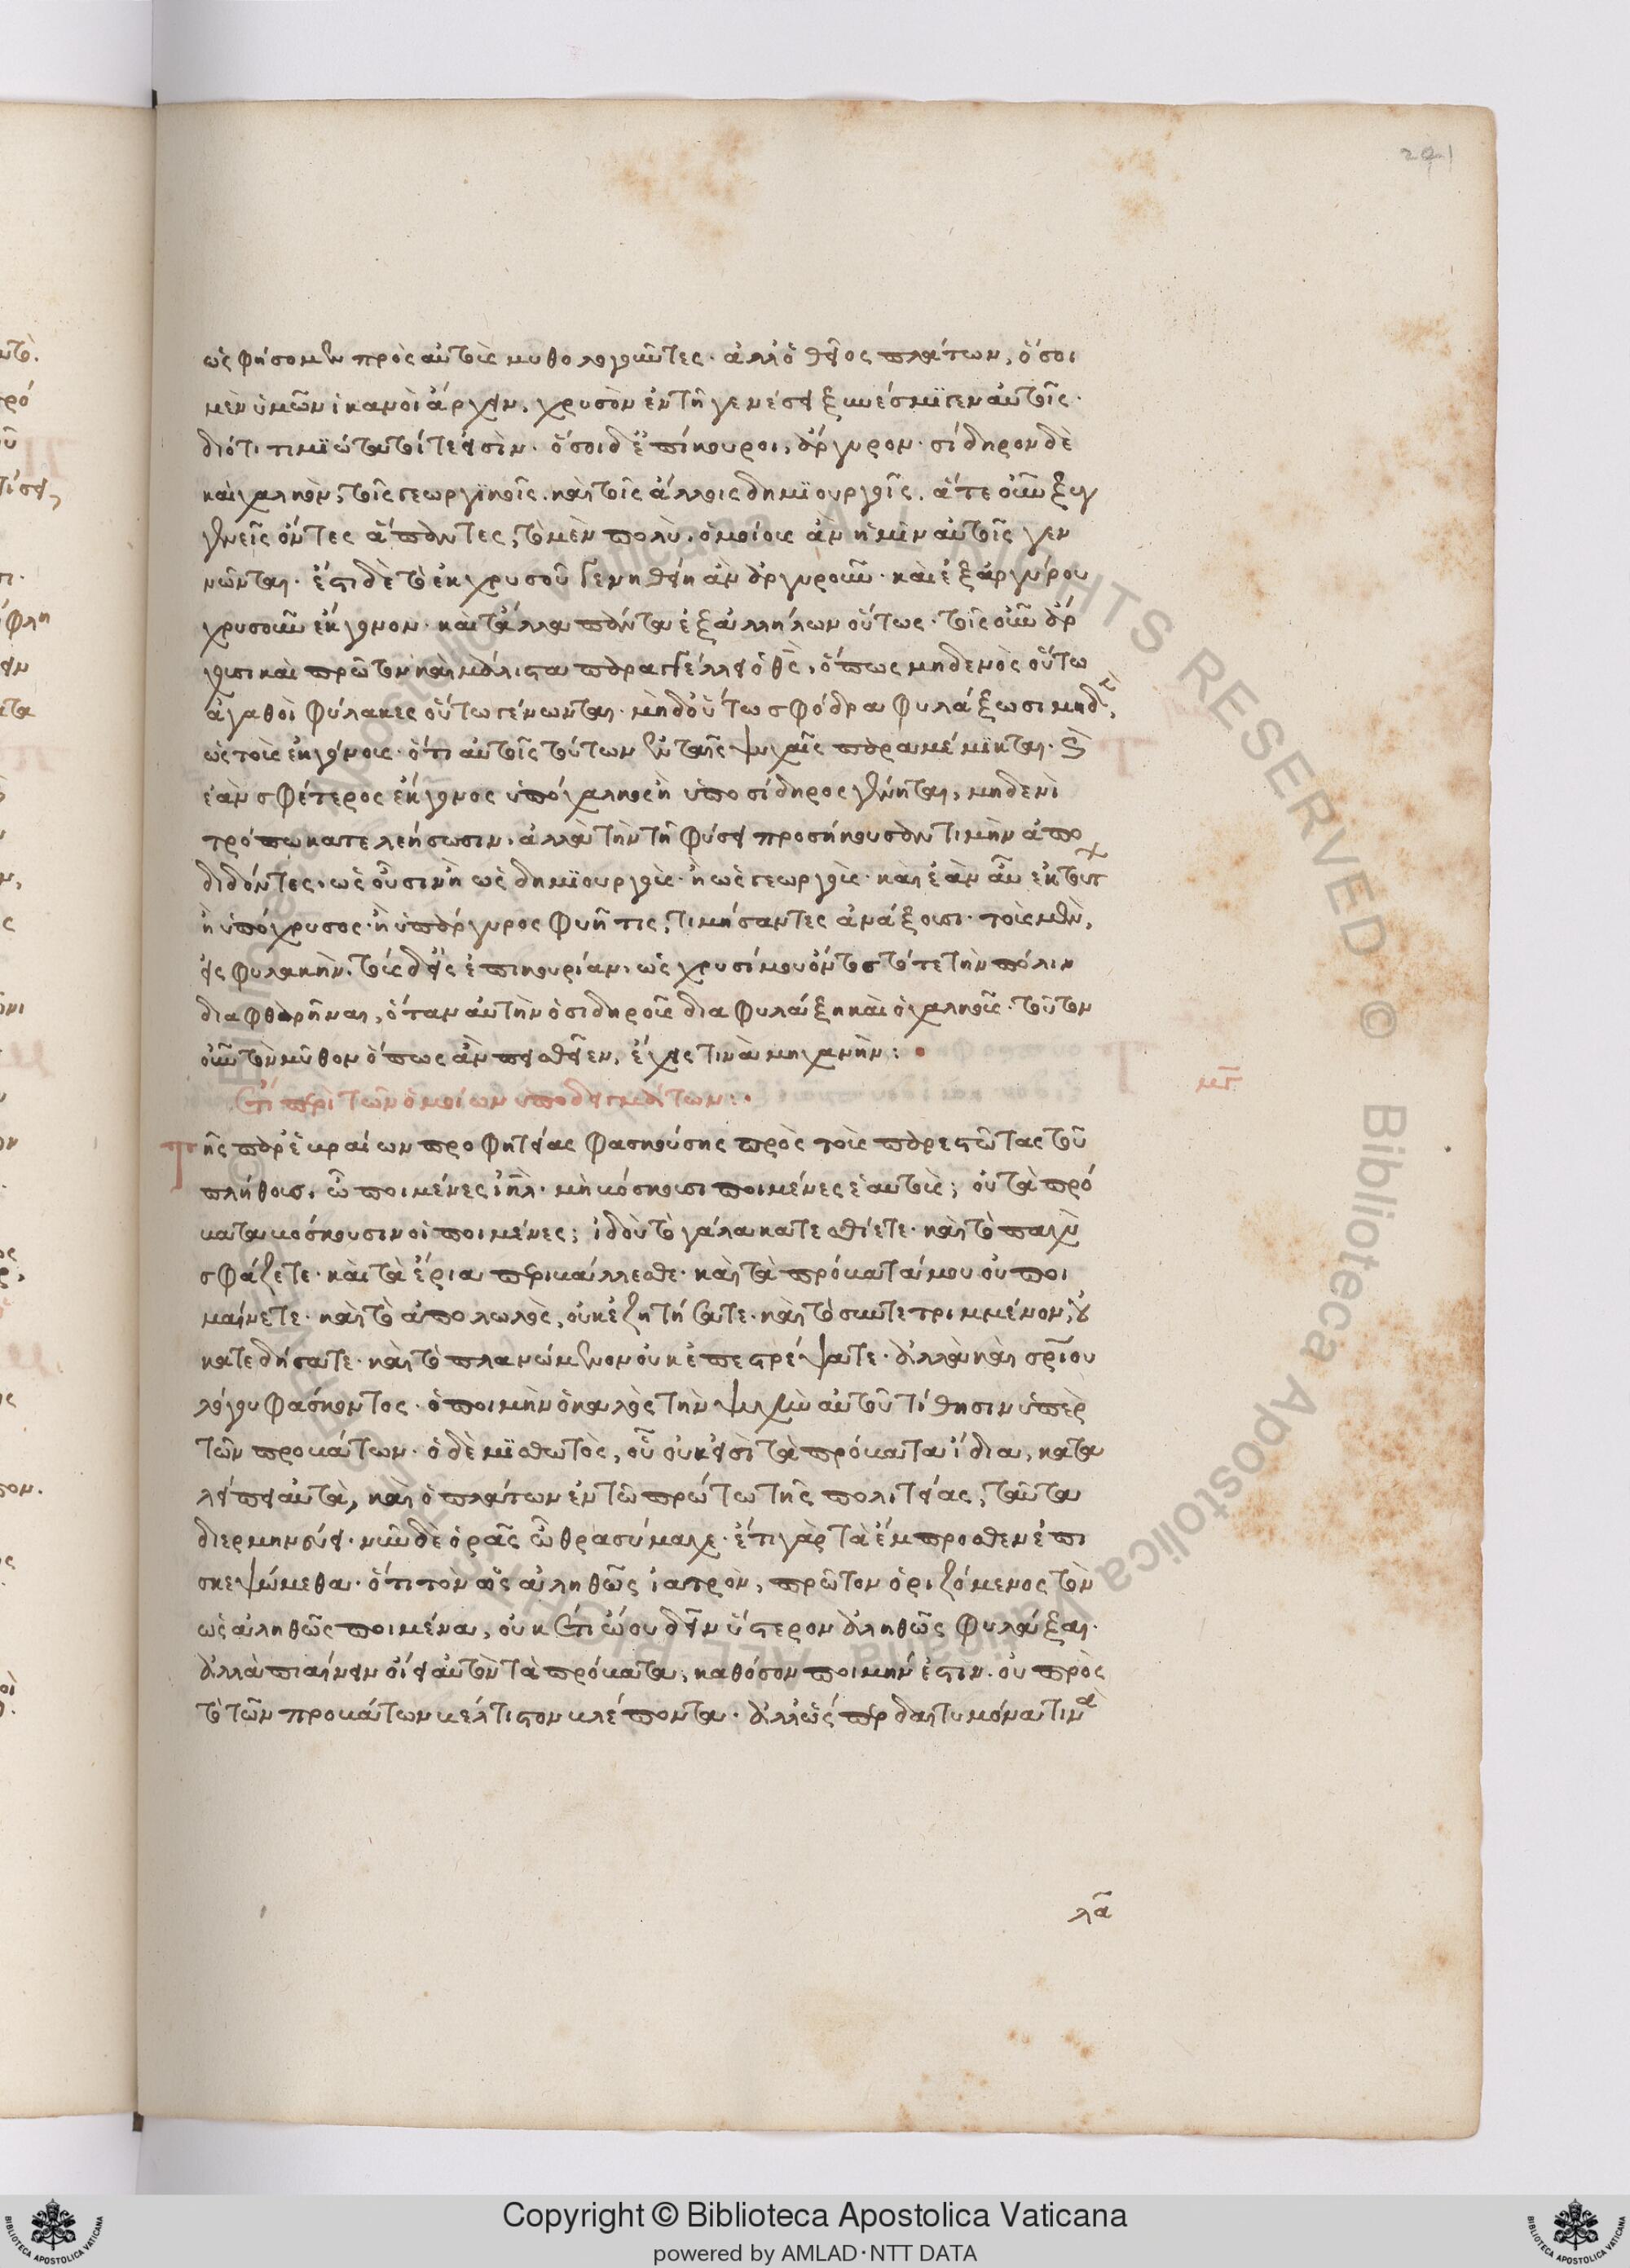 ὡς φήσομεν πρὸς αὐτοὺς μυθολογοῦντες· ἀλλ' ὁ θεῖος πλάτων, ὅσοι
μὲν ὑμῶν ἱκανοὶ ἄρχειν, χρυσὸν ἐν τῇ γενέσει ξυνέσμιγεν αὐτοῖς·
διότι τιμιώτατοί τε εἰσίν· ὅσοι δ' ἐπίκουροι, ἄργυρον· σίδηρον δὲ
καὶ χαλκὸν, τοῖς γεωργικοῖς. καὶ τοῖς ἄλλοις δημιουργοῖς. ἅτε οὖν ξυγ
γενεῖς ὄντες ἅπαντες, τὸ μὲν πολὺ, ὁμοίους ἂν ἡμῖν αὐτοῖς γεν
νῶνται· ἔστι δὲ τὸ ἐκ χρυσοῦ γενηθείη ἂν ἀργυροῦν· καὶ ἐξ ἀργύρου
χρυσοῦν ἔκγονον· καὶ τἄλλα πάντα ἐξ ἀλλήλων οὕτως· τοῖς οὖν ἄρ
χουσι καὶ πρῶτον καὶ μάλιστα παραγγέλλει ὁ θς, ὅπως μηδενὸς οὕτω
ἀγαθοὶ φύλακες οὕτω γένωνται· μηδ' οὕτω σφόδρα φυλάξωσι μηδὲν,
ὡς τοὺς ἐκγόνους· ὅτι αὐτοῖς τούτων ἐν ταῖς ψυχαῖς παραμέμικται· καὶ
ἐὰν σφέτερος ἔκγονος ὑπόχαλκος ἢ ὑποσίδηρος γένηται, μηδενὶ
τρόπω κατελεήσωσιν, ἀλλὰ τὴν τῇ φύσει προσήκουσαν τιμὴν ἀπο
διδόντες, ὡσοῦσιν ἢ ὡς δημιουργοὺς· ἢ ὡς γεωργοὺς· καὶ ἐὰν αὖ ἐκ τούτων
ἢ ὑπόχρυσος· ἢ ὑπάργυρος φυῇ τις, τιμήσαντες ἀνάξουσι· τοὺς μὲν,
εἰς φυλακὴν, τοὺς δ' εἰς ἐπικουρίαν, ὡς χρησίμου ὄντος τότε τὴν πόλιν
διαφθαρῆναι, ὅταν αὐτὴν ὁ σιδηροῦς διαφυλάξη καὶ ὁ χαλκοῦς· τοῦτον
οὖν τὸν μῦθον ὅπως ἂν πεισθεῖεν, ἔχεις τινὰ μηχανήν:
Ἔτι περὶ τῶν ὁμοίων ὑποδειγμάτων: μγ
Τῆς παρ' ἑβραίων προφητείας φασκούσης πρὸς τοὺς παρεστῶτας τοῦ
πλήθους, ὦ ποιμένες ἰηλ· μὴ βόσκουσι ποιμένες ἑαυτοὺς; οὐ τὰ πρό
βατα βόσκουσιν οἱ ποιμένες; ἰδοὺ τὸ γάλα κατεσθίετε· καὶ τὸ παχὺ
σφάζετε· καὶ τὰ ἔρια περιβάλλεσθε· καὶ τὰ πρόβατά μου οὐ ποι
μαίνετε· καὶ τὸ ἀπολωλὸς, οὐκ ἐζητήσατε· καὶ τὸ συντετριμμένον, οὐ
κατεδήσατε· καὶ τὸ πλανώμενον οὐκ ἐπεστρέψατε· ἀλλὰ καὶ σρίου
λόγου φάσκοντος· ὁ ποιμὴν ὁ καλὸς τὴν ψυχὴν αὐτοῦ τίθησιν ὑπὲρ
τῶν προβάτων· ὁ δὲ μισθωτὸς, οὗ οὐκ εἰσὶ τὰ πρόβατα ἴδια, κατα
λείπει αὐτὰ, καὶ ὁ πλάτων ἐν τῶ πρώτω τῆς πολιτείας, ταῦτα
διερμηνεύει· νῦν δὲ ὁρᾶς ὦ θρασύμαχε· ἔτι γὰρ τὰ ἔμπροσθεν ἐπι
σκεψώμεθα· ὅτι τὸν ὡς ἀληθῶς ἰατρὸν, πρῶτον ὁριζόμενος τὸν
ὡς ἀληθῶς ποιμένα, οὐκέτι ᾤου δεῖν ὕστερον ἀληθῶς φυλάξαι·
ἀλλὰ πιαίνειν οἴει αὐτὸν τὰ πρόβατα, καθόσον ποιμήν ἐστιν. οὐ πρὸς
τὸ τῶν προβάτων βέλτιστον βλέποντα· ἀλλ' ὥσπερ δαιτυμόνα τινὰ
λα